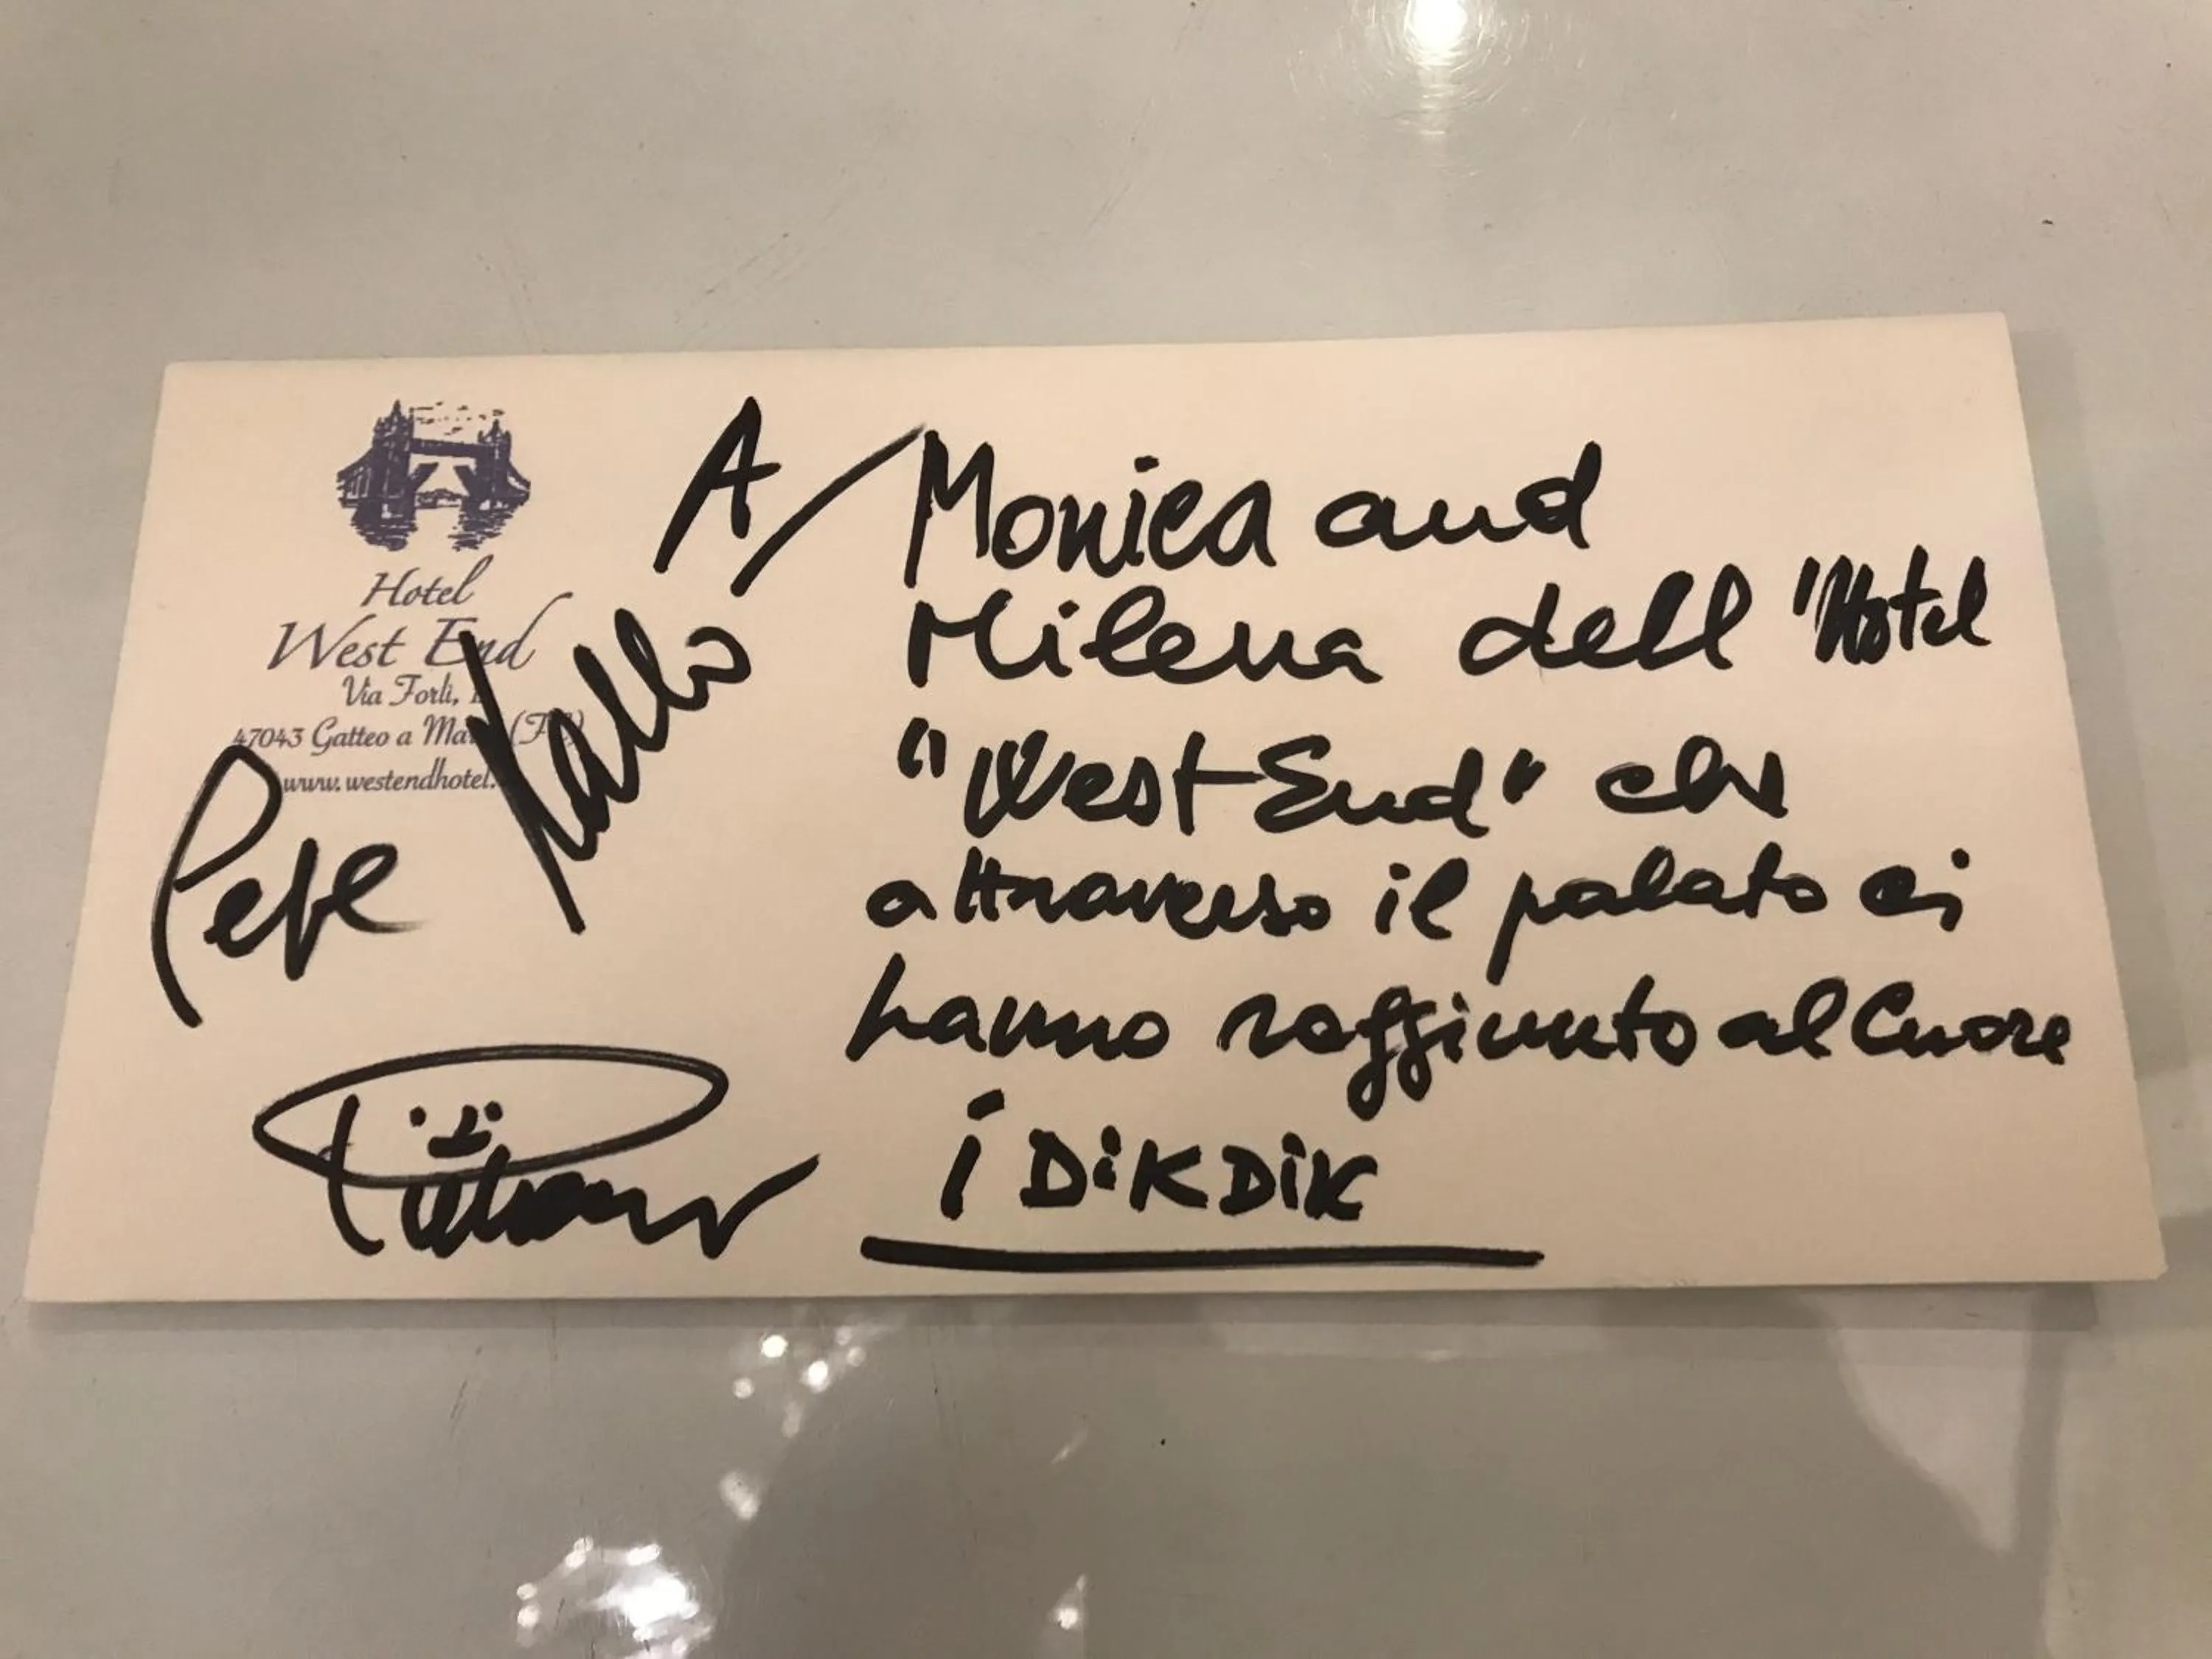 Hotel
West End
Via Forlì,
47043 Gatteo a Ma
www.westendhotel.
A Monica and
Milena dell'Hotel
"West End" che
attraverso il palato ci
hanno raggiunto al Cuore
i DiKDiK
Pepe
Pietro